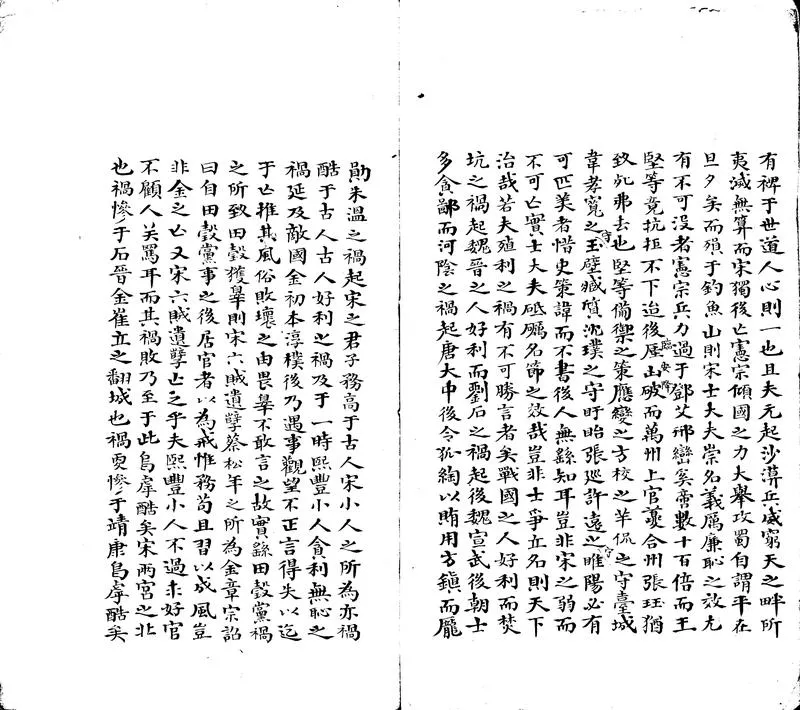 有裨于世道人心則一也且夫元起沙漠兵威窮天之畔所
夷滅無算而宋獨後亡憲宗傾國之力大舉攻蜀自謂平在
旦夕矣而殞于釣魚山則宋士大夫崇名義厲廉恥之效尤
有不可沒者憲宗兵力過于鄧艾邢巒奚啻數十百倍而王
堅等竟抗拒不下迨後厓山破臨安降而萬州上官夔合州張珏猶
致死弗去也堅等備禦之策應變之方校之羊侃之守臺城
韋孝寬之守玉壁臧質沈璞之守盱眙張巡許遠之守睢陽必有
可匹美者惜史策諱而不書後人無繇知耳豈非宋之弱而
不可亡實士大夫砥礪名節之效哉豈非士爭立名則天下
治哉若夫殖利之禍有不可勝言者矣戰國之人好利而焚
坑之禍起魏晉之人好利而劉石之禍起後魏宣武後朝士
多貪鄙而河陰之禍起唐大中後令狐綯以賄用方鎮而龐
勛朱溫之禍起宋之君子務高于古人宋小人之所為亦禍
酷于古人古人好利之禍及于一時熙豐小人貪利無恥之
禍延及敵國金初本淳樸後乃遇事觀望不正言得失以迄
于亡推其風俗敗壞之由畏辠不敢言之故實繇田瑴黨禍
之所致田瑴獲辠則宋六賊遺孽蔡松年之所為金章宗詔
曰自田瑴黨事之後居官者以為戒惟務苟且習以成風豈
非金之亡又宋六賊遺孽亡之乎夫熙豐小人不過求好官
不顧人笑罵耳而其禍敗乃至于此烏虖酷矣宋兩宮之北
也禍慘于石晉金崔立之翻城也禍更慘于靖康烏虖酷矣